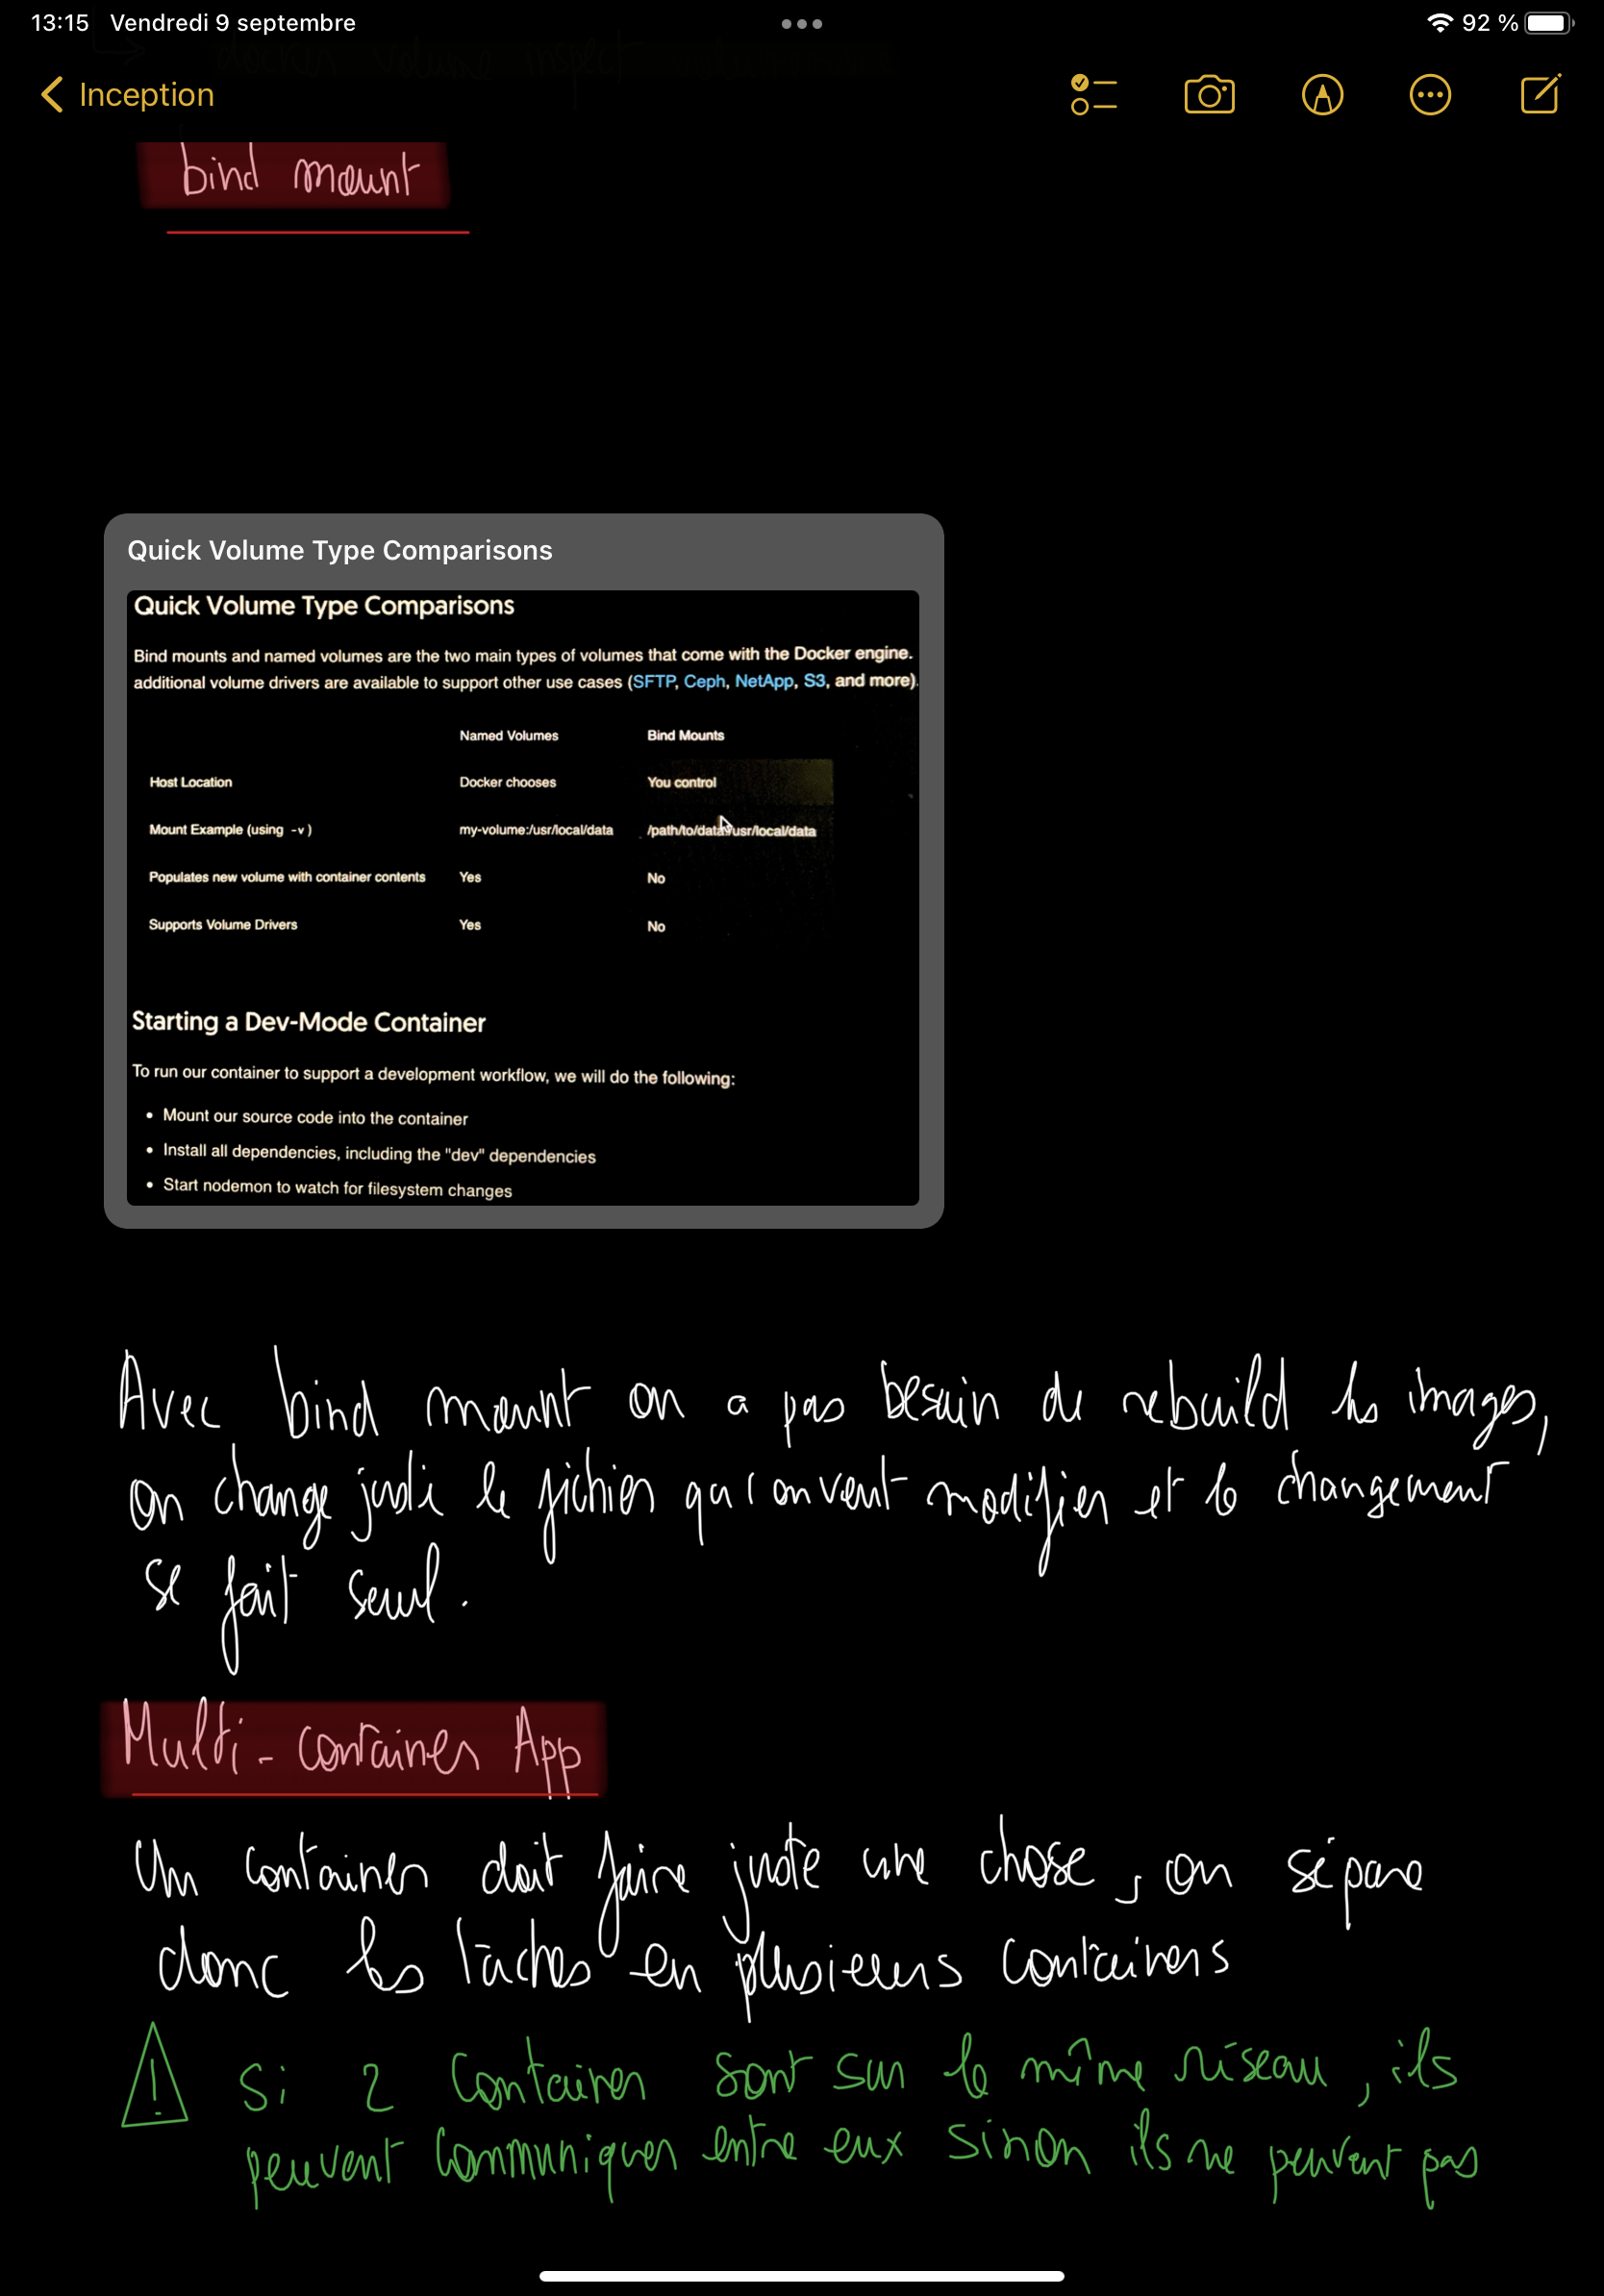 13:15 Vendredi 9 septembre
92 %
docker volume inspect
Inception
bind mount
Quick Volume Type Comparisons
Quick Volume Type Comparisons
Bind mounts and named volumes are the two main types of volumes that come with the Docker engine.
additional volume drivers are available to support other use cases (SFTP, Ceph, NetApp, S3, and more).
Named Volumes Bind Mounts
Host Location Docker chooses You control
Mount Example (using -v) my-volume:/usr/local/data /path/to/data:/usr/local/data
Populates new volume with container contents Yes No
Supports Volume Drivers Yes No
Starting a Dev-Mode Container
To run our container to support a development workflow, we will do the following:
• Mount our source code into the container
• Install all dependencies, including the "dev" dependencies
• Start nodemon to watch for filesystem changes
Avec bind mount on a pas besoin de rebuild les images,
on change juste le fichier qu'on veut modifier et le changement
se fait seul.
Multi-container App
Un container doit faire juste une chose, on sépare
donc les tâches en plusieurs containers
! Si 2 container sont sur le même réseau, ils
peuvent communiquer entre eux sinon ils ne peuvent pas